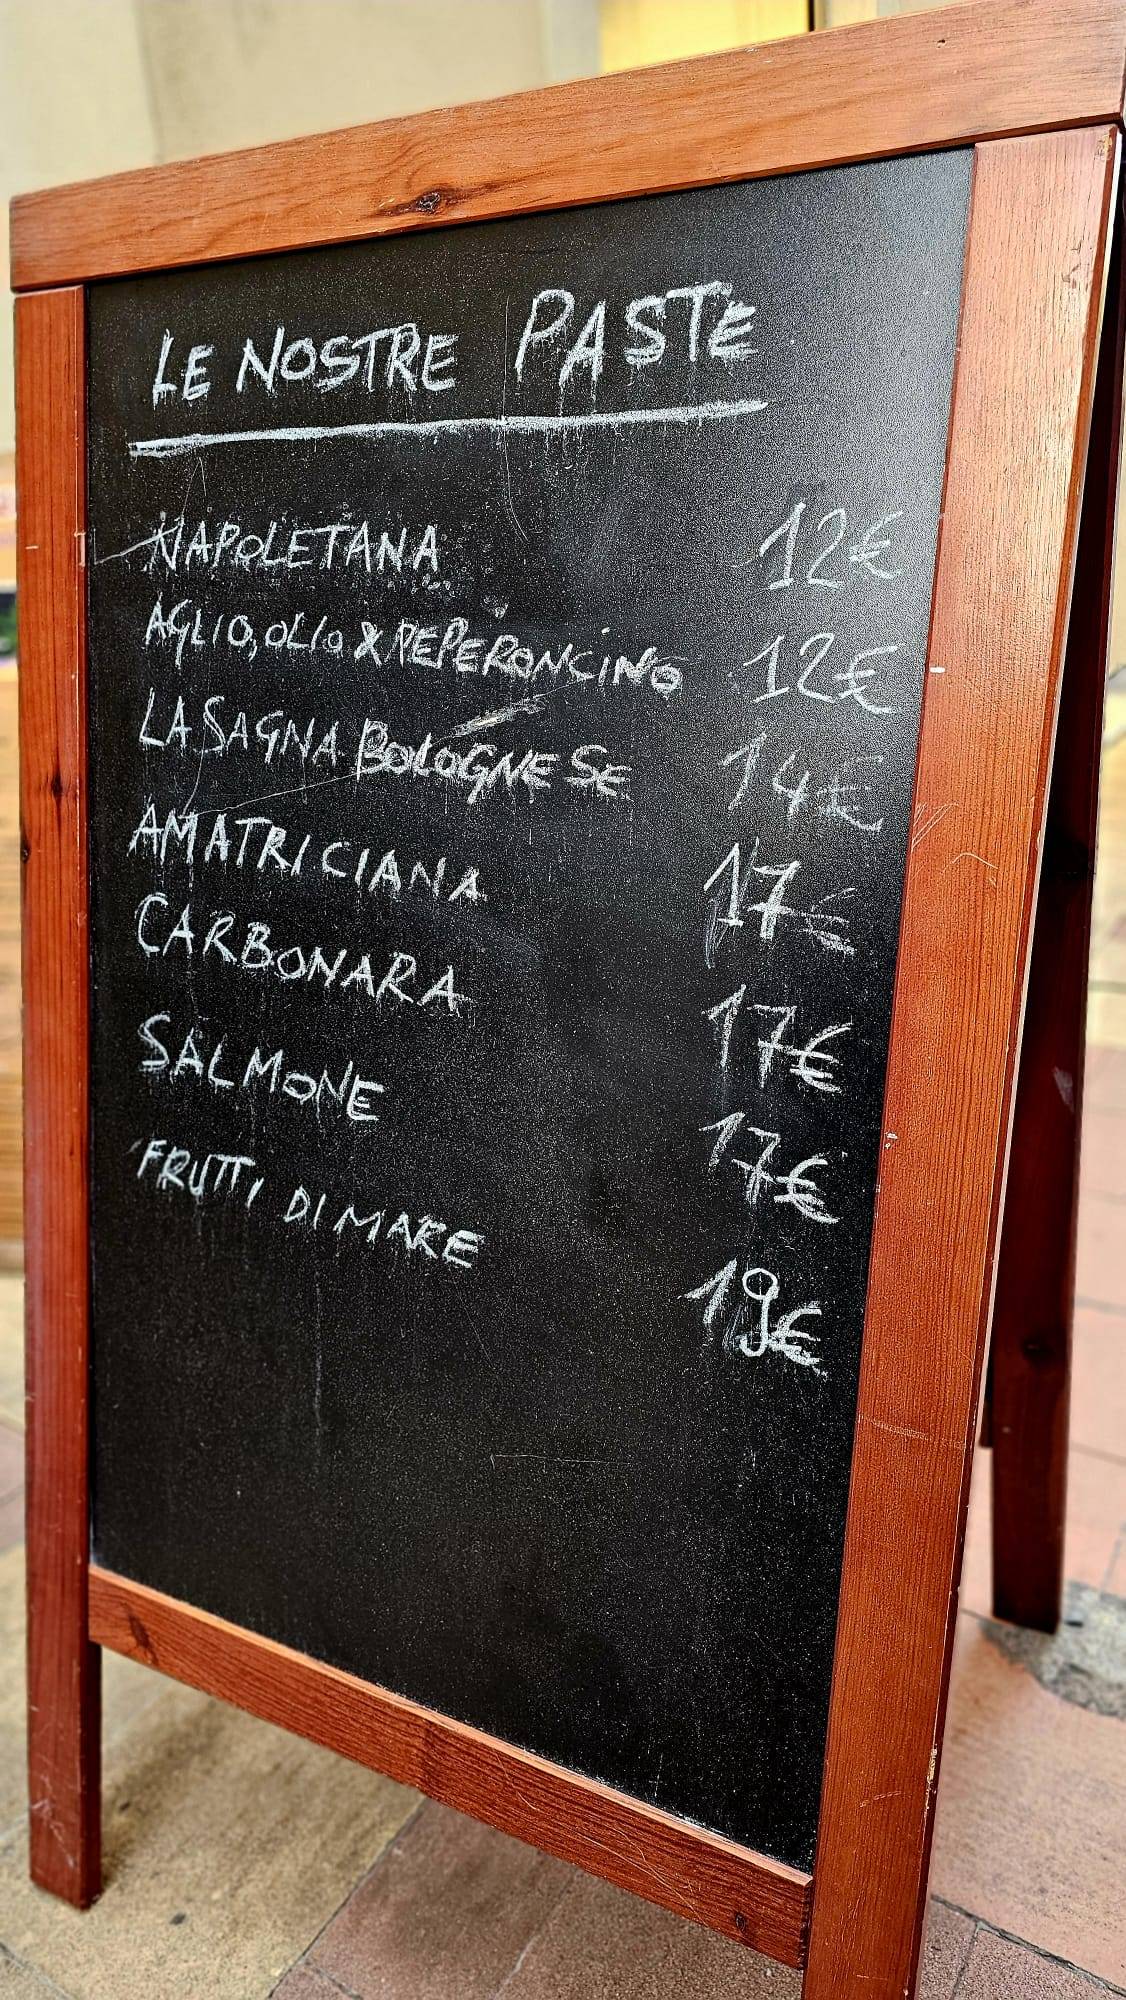 LE NOSTRE PASTE
NAPOLETANA 12€
AGLIO, OLIO & PEPERONCINO 12€
LASAGNA BOLOGNESE 14€
AMATRICIANA 17€
CARBONARA 17€
SALMONE 17€
FRUTTI DI MARE 19€